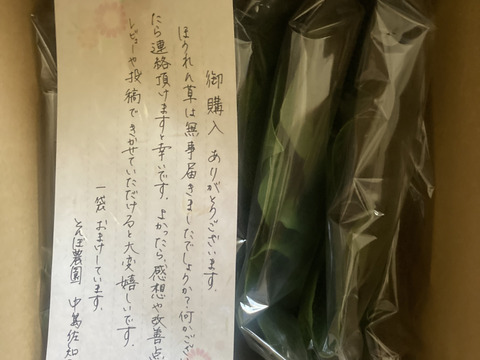 御購入 ありがとうございます。
ほうれん草は無事届きましたでしょうか?何かござい
たら連絡頂けますと幸いです。よかったら感想や改善点
レビューや投稿できかせていただけると大変嬉しいです。
一袋 おまけしています。
とんぼ農園 中島佐知